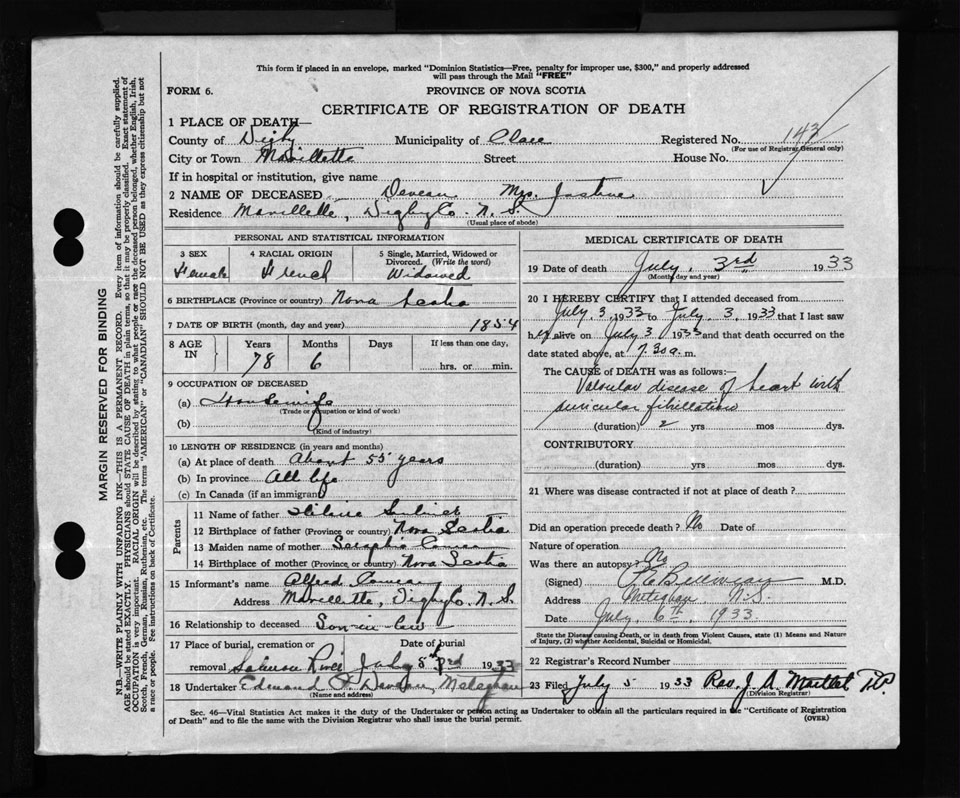 This form if placed in an envelope, marked "Dominion Statistics—Free, penalty for improper use, $300," and properly addressed
will pass through the Mail "FREE"
FORM 6. PROVINCE OF NOVA SCOTIA
CERTIFICATE OF REGISTRATION OF DEATH
1 PLACE OF DEATH—
County of Digby Municipality of Clare Registered No. 143
(For use of Registrar General only)
City or Town Mavillette Street House No.
If in hospital or institution, give name
2 NAME OF DECEASED Deveau Mrs. Justine
Residence Mavillette, Digby Co. N. S.
(Usual place of abode)
PERSONAL AND STATISTICAL INFORMATION
3 SEX 4 RACIAL ORIGIN 5 Single, Married, Widowed or
Divorced. (Write the word)
Female French Widowed
6 BIRTHPLACE (Province or country) Nova Scotia
7 DATE OF BIRTH (month, day and year) 1854
8 AGE IN Years Months Days If less than one day,
78 6 hrs. or min.
9 OCCUPATION OF DECEASED
(a) Housewife
(Trade or occupation or kind of work)
(b)
(Kind of industry)
10 LENGTH OF RESIDENCE (in years and months)
(a) At place of death About 55 years
(b) In province All life
(c) In Canada (if an immigrant)
Parents
11 Name of father
12 Birthplace of father (Province or country) Nova Scotia
13 Maiden name of mother Comeau
14 Birthplace of mother (Province or country) Nova Scotia
15 Informant's name Alfred Comeau
Address Mavillette, Digby Co. N. S.
16 Relationship to deceased Son-in-law
17 Place of burial, cremation or Date of burial
removal Salmon River July 1933
18 Undertaker Edmund P. Deveau, Meteghan
(Name and address)
MEDICAL CERTIFICATE OF DEATH
19 Date of death July, 3rd 1933
(Month, day and year)
20 I HEREBY CERTIFY that I attended deceased from
July. 3. 1933 to July. 3. 1933 that I last saw
her alive on July 3 1933 and that death occurred on
the date stated above, at 7.30 a. m.
The CAUSE of DEATH was as follows:—
Valvular disease of heart with
auricular fibrillation
(duration) 2 yrs mos dys.
CONTRIBUTORY
(duration) yrs mos dys.
21 Where was disease contracted if not at place of death?
Did an operation precede death? No Date of
Nature of operation
Was there an autopsy? No
(Signed) M.D.
Address Meteghan, N.S.
Date July, 6th, 1933.
State the Disease causing Death, or in death from Violent Causes, state (1) Means and Nature
of Injury, (2) whether Accidental, Suicidal or Homicidal.
22 Registrar's Record Number
23 Filed July 5 1933 Rev. J. A.
(Division Registrar)
Sec. 46—Vital Statistics Act makes it the duty of the Undertaker or person acting as Undertaker to obtain all the particulars required in the "Certificate of Registration
of Death" and to file the same with the Division Registrar who shall issue the burial permit. (OVER)
MARGIN RESERVED FOR BINDING
N.B.—WRITE PLAINLY WITH UNFADING INK—THIS IS A PERMANENT RECORD. Every item of information should be carefully supplied.
AGE should be stated EXACTLY. PHYSICIANS should STATE CAUSE OF DEATH in plain terms, so that it may be properly classified. Exact statement of
OCCUPATION is very important. RACIAL ORIGIN will be described by stating to what people or race the deceased person belonged, whether English, Irish,
Scotch, French, German, Russian, Ruthenian, etc. The terms "AMERICAN" or "CANADIAN" SHOULD NOT BE USED as they express citizenship but not
a race or people. See instructions on back of Certificate.